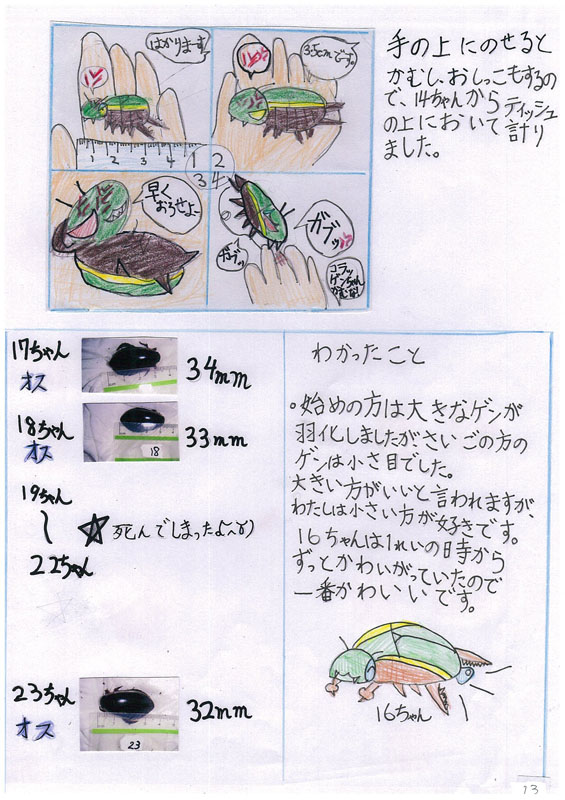 はかりまーす
3.5cmでーす。
早く
おろせよー
ガブッ
ガブッ
コラッ
ゲンちゃん
かむな!
1 2 3 4
1 2
3 4
手の上にのせると
かむし、おしっこもするの
で、14ちゃんからティッシュ
の上において計り
ました。
17ちゃん
オス
34mm
18ちゃん
オス
18
33mm
19ちゃん
〜
22ちゃん
☆死んでしまったよ〜
23ちゃん
オス
23
32mm
わかったこと
。始めの方は大きなゲンが
羽化しましたがさいごの方の
ゲンは小さ目でした。
大きい方がいいと言われますが、
わたしは小さい方が好きです。
16ちゃんは1れいの時から
ずっとかわいがっていたので
一番かわいいです。
16ちゃん
13